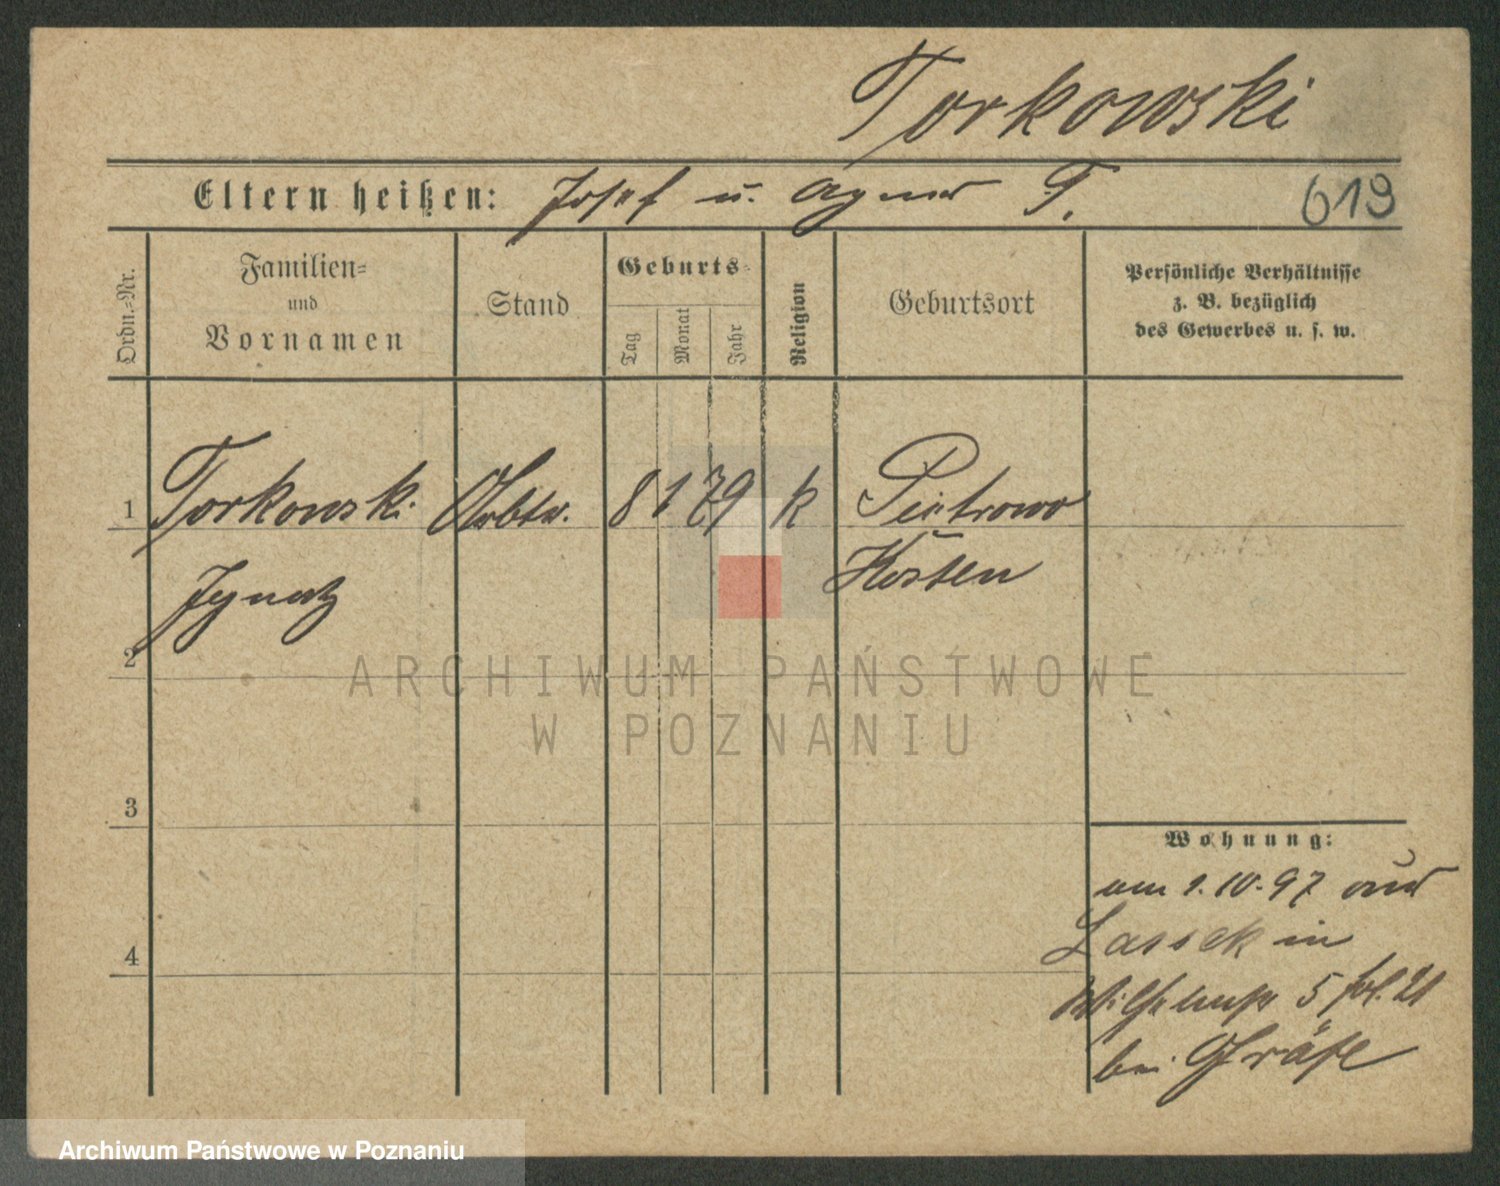 Torkowski
Eltern heißen: Josef u. Agnes T. 619
Ordn.-Nr.
Familien-
und
Vornamen
Stand
Geburts-
Tag
Monat
Jahr
Religion
Geburtsort
Persönliche Verhältnisse
z. B. bezüglich
des Gewerbes u. s. w.
1 Torkowski Arbtr. 8 1 79 k Piotrowo
Kosten
Ignatz
2
3
4
Wohnung:
am 1.10.97 aus
Lassek in
5 21
bei Gräfe
ARCHIWUM PAŃSTWOWE
W POZNANIU
Archiwum Państwowe w Poznaniu